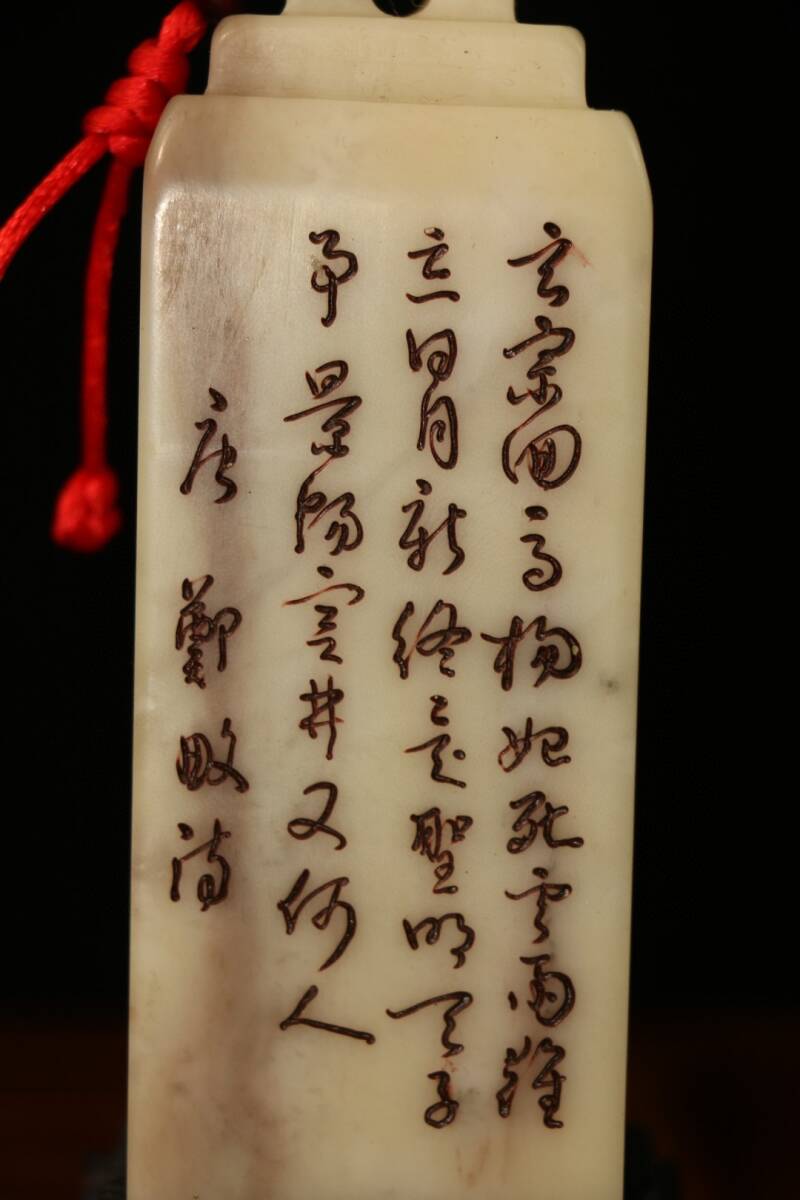 玄宗回馬楊妃死雲雨難
忘日月新終是聖明天子
事景陽宮井又何人
唐鄭畋詩